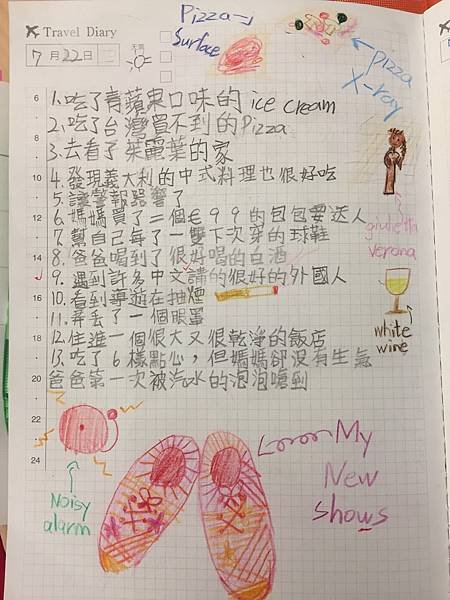 Travel Diary
7月22日 天氣
Pizza-
Surface
pizza
X-ray
6
8
10
12
14
16
18
20
22
24
1.吃了青蘋果口味的 ice cream
2.吃了台灣買不到的Pizza
3.去看了茱麗葉的家
4.發現義大利的中式料理也很好吃
5.讓警報器響了
6.媽媽買了二個€99的包包要送人
7.幫自己每了一雙下次穿的球鞋
8.爸爸喝到了很好喝的白酒
9.遇到許多中文講的很好的外國人
10.看到導遊在抽煙
11.弄丟了一個眼罩
12.住進一個很大又很乾淨的飯店
13.吃了6樣點心，但媽媽卻沒有生氣
爸爸第一次被汽水的泡泡嗆到
giulietta
verona
white
wine
Noisy
alarm
My
New
shows